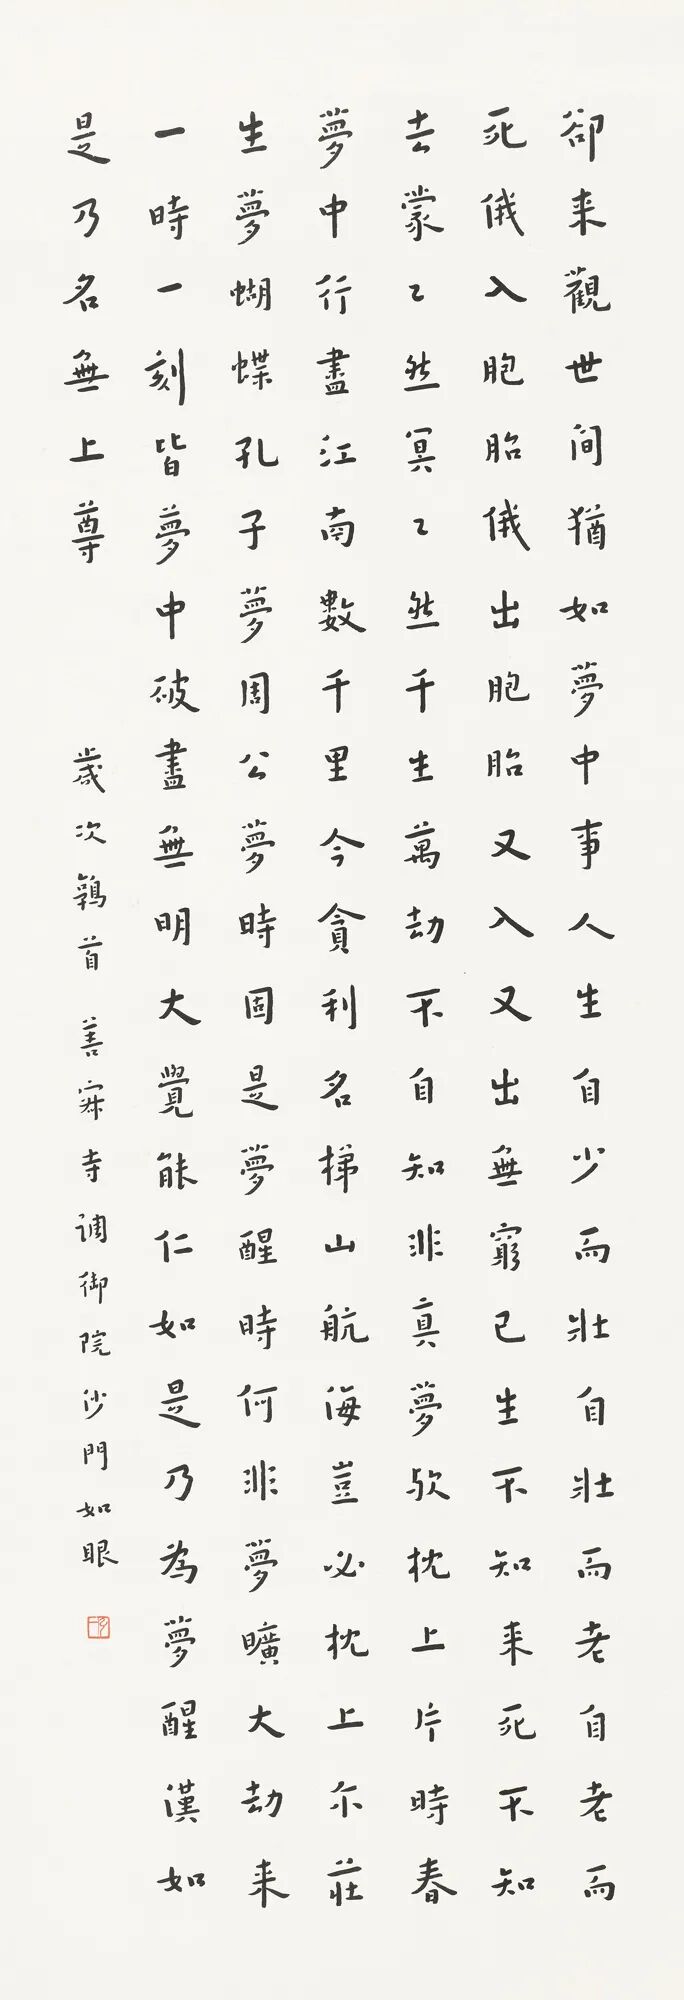 卻来觀世间猶如夢中事人生自少而壯自壯而老自老而
死俄入胞胎俄出胞胎又入又出無窮已生不知来死不知
去蒙〻然冥〻然千生萬劫不自知非真夢欤枕上片時春
夢中行盡江南數千里今貪利名梯山航海豈必枕上尔莊
生夢蝴蝶孔子夢周公夢時固是夢醒時何非夢曠大劫来
一時一刻皆夢中破盡無明大覺能仁如是乃為夢醒漢如
是乃名無上尊
歲次鶉首 善寂寺調御院沙門如眼